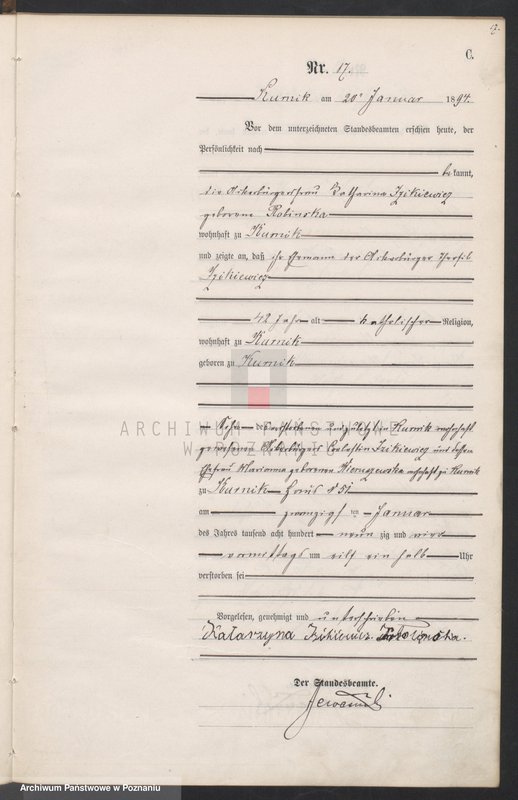 17.
C.
Nr. 17.
Kurnik am 20t Januar 1894.
Vor dem unterzeichneten Standesbeamten erschien heute, der
Persönlichkeit nach
bekannt,
die Ackerbürgersfrau Katharina Izikiewicz
geborene Robinska
wohnhaft zu Kurnik
und zeigte an, daß ihr Ehemann der Ackerbürger Theofil
Izikiewicz
42 Jahr alt katholischer Religion,
wohnhaft zu Kurnik
geboren zu Kurnik
Sohn des verstorbenen zuletzt in Kurnik wohnhaft
gewesenen Ackerbürgers Coelestin Izikiewicz und dessen
Ehefrau Marianna geborenen wohnhaft zu Kurnik
zu Kurnik Haus № 51
am zwanzigsten Januar
des Jahres tausend acht hundert neunzig und vier
vormittags um eilf ein halb Uhr
verstorben sei
Vorgelesen, genehmigt und unterschrieben
Katarzyna Izikiewicz
Der Standesbeamte.
ARCHIWUM PAŃSTWOWE
W POZNANIU
Archiwum Państwowe w Poznaniu